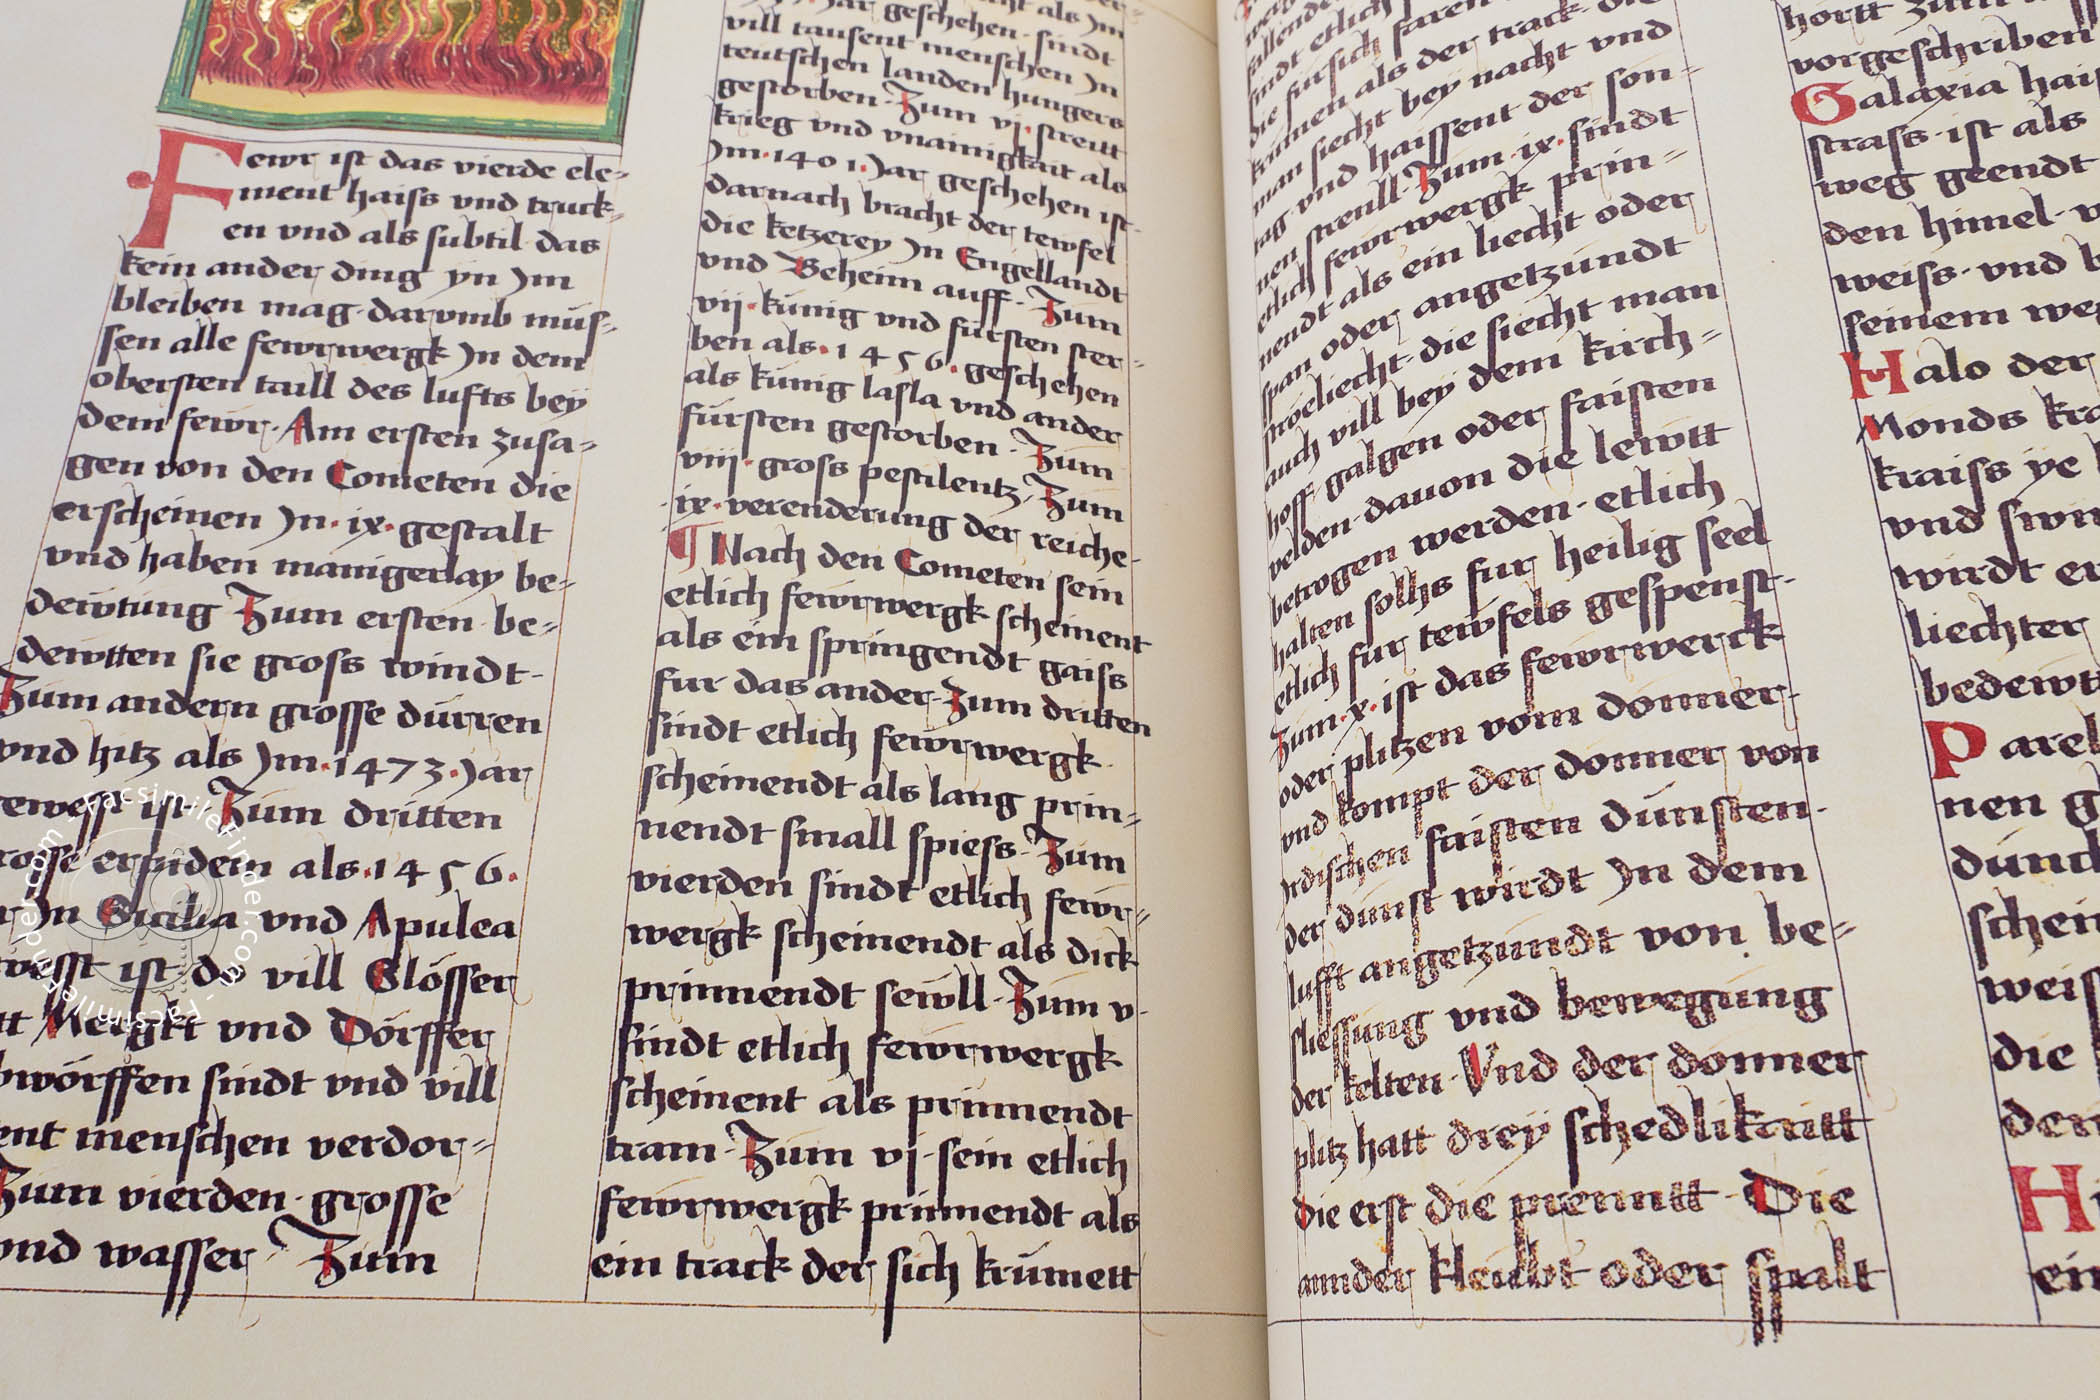 Fewr ist das vierde ele=
ment haiss vnd truck=
en vnd als subtil das
kein ander ding yn Jm
bleiben mag · darvmb müs=
sen alle fewrwergk Jn dem
obersten taill des lufts bey
dem fewr · Am ersten zusa=
gen von den Cometen die
erscheinen Jn · ix · gestalt
vnd haben manigerlay be=
dewtung Zum ersten be=
dewtten sie gross windt ·
Zum andern grosse dürren
vnd hitz als Jm · 1473 · Jar
gewesst ist Zum dritten
grosse erpidem als · 1456 ·
Jn Sicilia vnd Apulea
gewesst ist do vill Slösser
Mergkt vnd Dörffer
sindt vnd vill
menschen verdor=
Zum vierden · grosse
vnd wasser · Zum
Jar geschehen · sindt
vill tausent menschen Jn
teutschen landen hungers
gestorben · Zum vj · streitt
krieg vnd vnainigkait als
Jm · 1401 · Jar geschehen ist ·
darnach bracht der tewfel
die ketzerey Jn Engellandt
vnd Beheim auff · Zum
vij · künig vnd fürsten ster=
ben als · 1456 · geschehen
als künig lasla vnd ander
fürsten gestorben · Zum
viij · gross pestilentz · Zum
ix · verenderung der reiche ·
¶ Nach den Cometen sein
etlich fewrwergk scheinent
als ein springendt gaiss
fur das ander · Zum dritten
sindt etlich fewrwergk ·
scheinendt als lang prin=
nendt small spiess · Zum
vierden sindt etlich fewr=
wergk scheinendt als dick
prinnendt sewll · Zum v ·
sindt etlich fewrwergk
scheinent als prinnendt
tram · Zum vj · sein etlich
fewrwergk prinnendt als
ein track der sich krümett
sindt etlich
die fursich faren
kümen als der track · die
man siecht bey nacht vnd
tag · vnd haissent der son=
nen strenll · Zum · ix · sindt
etlich fewrwergk prin=
nendt als ein liecht oder
span oder angetzündt
stroeliecht · die siecht man
auch vill bey dem kirch=
hoff · galgen oder faisten
velden · dauon die lewtt
betrogen werden · etlich
halten solhs fur heilig seel
etlich fur tewfels gespenst ·
Zum · x · ist das fewrwerck
oder plitzen vom donner ·
vnd kompt der donner von
Jrdischen faisten dünsten ·
der dunst wirdt Jn dem
lufft angetzundt von be=
sliessung vnd bewegung
der kelten · Vnd der donner
plitz hatt drey schedlikaitt
die erst die prennitt · Die
annder kleubt oder spalt
hortt zum
vorgeschriben
Galaxia
strass · ist als
weg geendt
den himel ·
weiss · vnd
seinem
Halo der
Monds
kraiss ye
vnd
wirdt
liechter
bedewt
nen
schein
weiss
die
den
ein
FacsimileFinder.com · FacsimileFinder.com ·